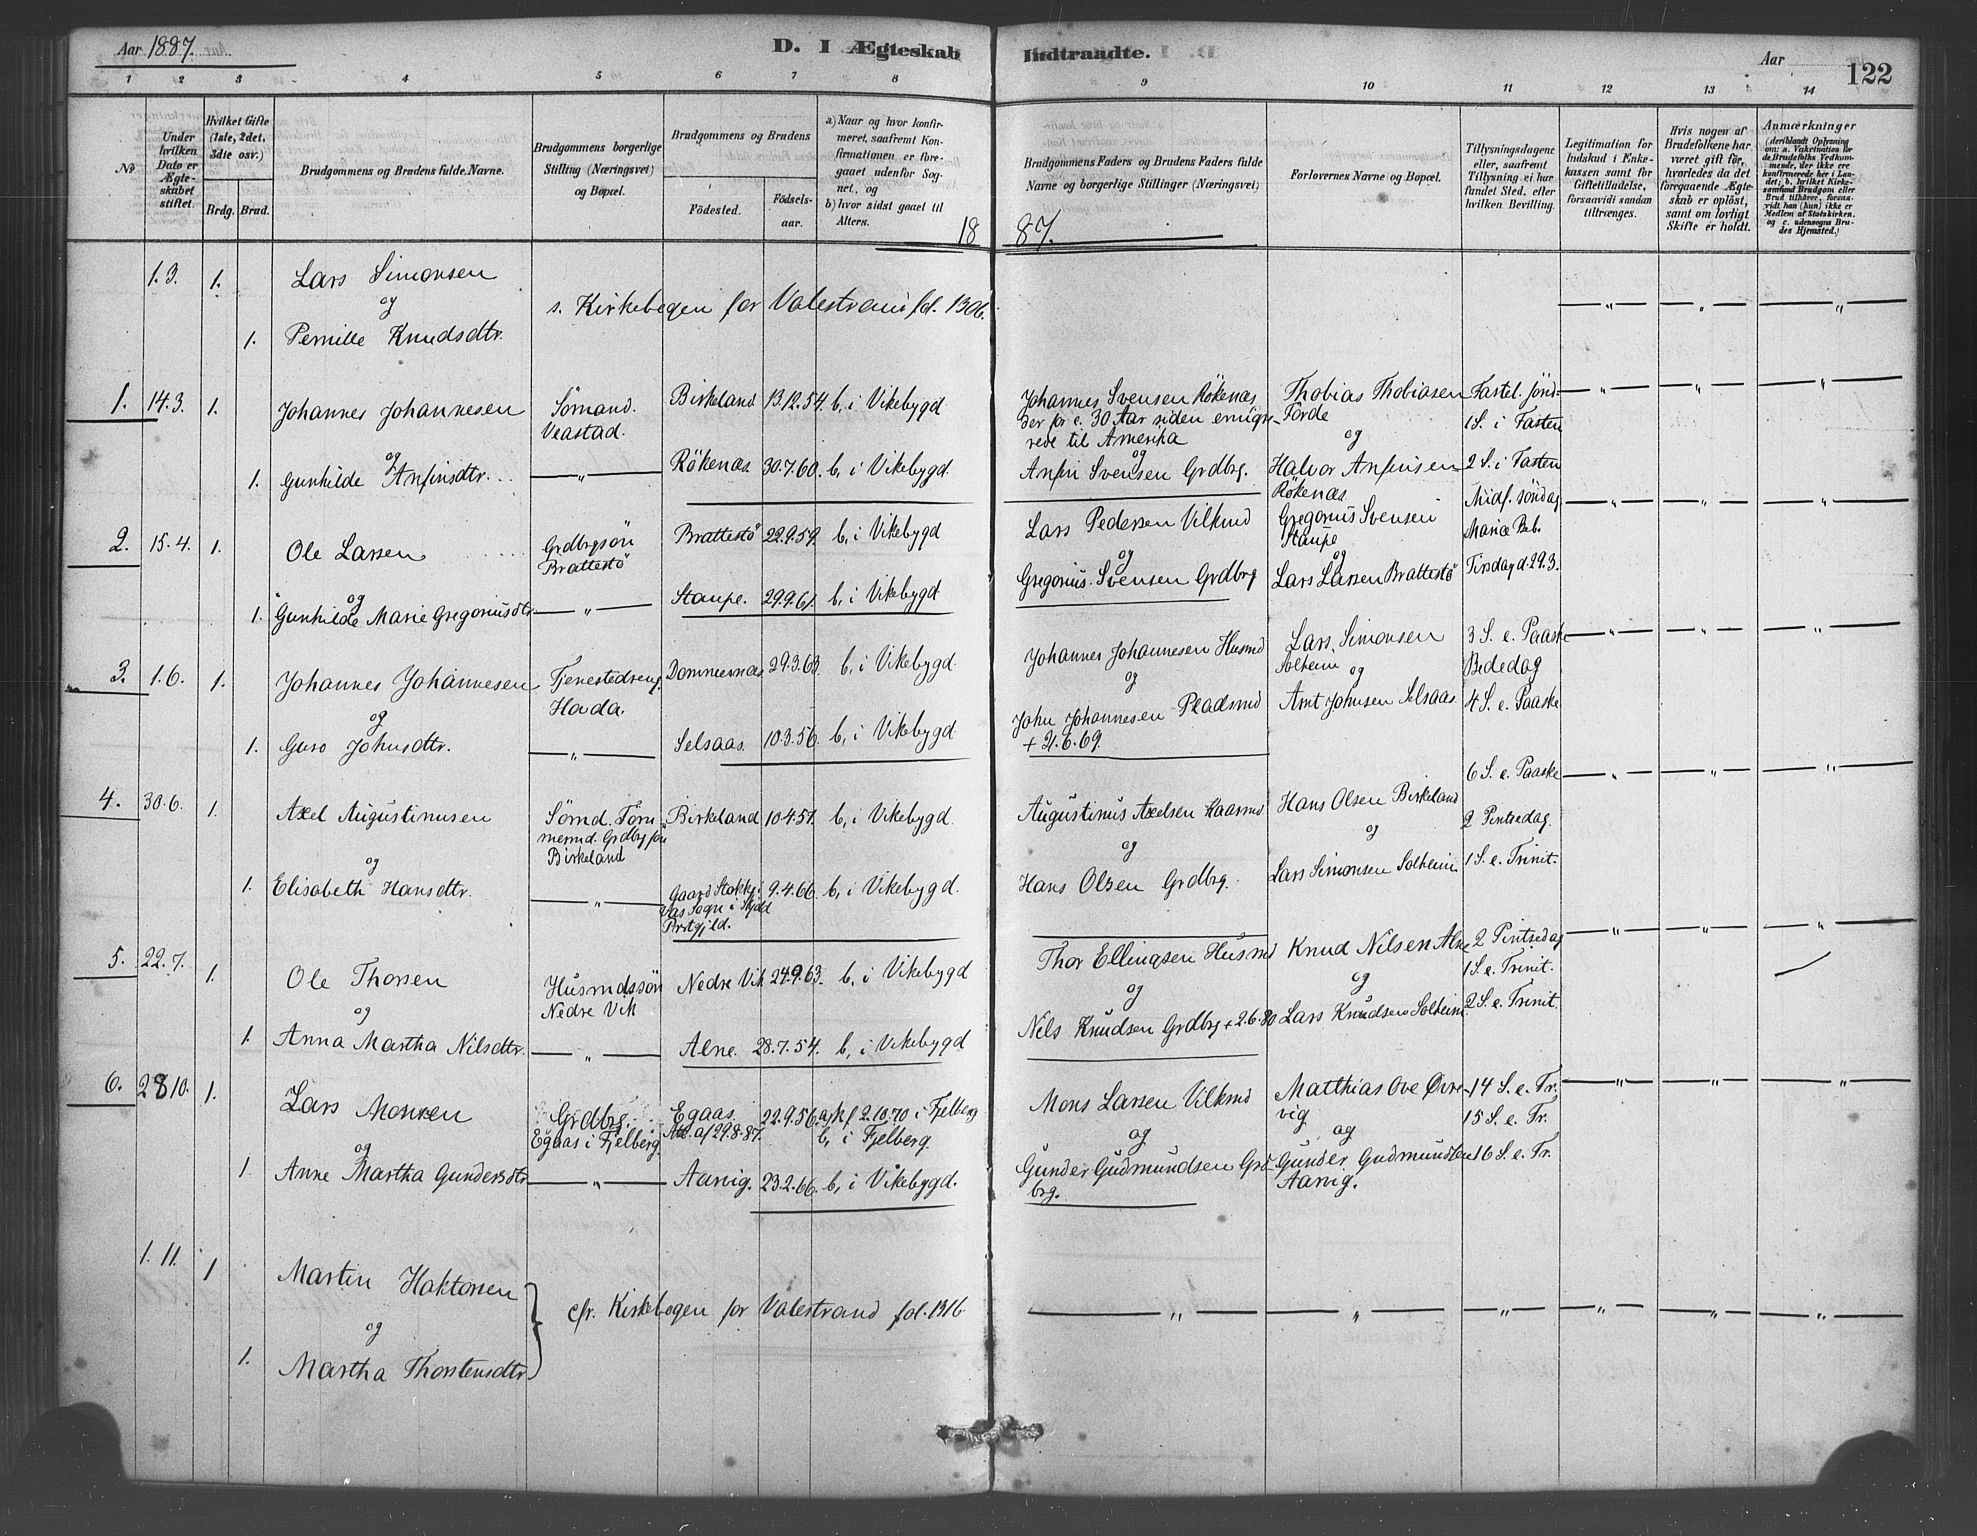 Aar 1887.
D. I Ægteskab Indtraadte.
Aar
122
1 2 3 4 5 6 7 8 9 10 11 12 13 14
No
Under hvilken Dato er Ægteskabet stiftet.
Hvilket Gifte (1ste, 2det, 3die osv.)
Brdg. Brud.
Brudgommens og Brudens fulde Navne.
Brudgommens borgerlige Stilling (Næringsvei) og Bopæl.
Brudgommens og Brudens
Födested.
Födselsaar.
a) Naar og hvor konfirmeret, saafremt Konfirmationen er foregaaet udenfor Sognet, og
b) hvor sidst gaaet til Alters.
Brudgommens Faders og Brudens Faders fulde Navne og borgerlige Stillinger (Næringsvei)
Forlovernes Navne og Bopæl.
Tillysningsdagene eller, saafremt Tillysning ei har fundet Sted, efter hvilken Bevilling.
Legitimation for Indskud i Enkekassen samt for Giftetilladelse, forsaavidt saadan tiltrænges.
Hvis nogen af Brudefolkene har været gift før, hvorledes da det foregaaende Ægteskab er oplöst, samt om lovligt Skifte er holdt.
Anmærkninger (deriblandt Oplysning om: a. Vakcination for de Brudefolks Vedkommende, der ikke ere konfirmerede her i Landet; b. hvilket Kirkesamfund Brudgom eller Brud tilhörer, forsaavidt han (hun) ikke er Medlem af Statskirken, og c. udensogns Brudes Hjemsted.)
18 87.
1.3. 1. Lars Simonsen
og
1. Pernille Knudsdtr.
s. Kirkebogen for Valestrand fol. 130b.
— " — — " — — " —
1. 14.3. 1. Johannes Johannesen Sømand. Veastad. Birkeland 13.12.54. b, i Vikebygd
Johannes Svensen Rökenæs der for c. 30 Aar siden emigrerede til Amerika
Thobias Thobiasen Førde
og
Fastel. Jønd.
1 S. i Fasten
og
1. Gunhilde Anfinsdtr. — " — Rökenæs 30.7.60. b, i Vikebygd.
og
Anfin Svensen Grdbrg.
Halvor Anfinsen Rökenæs.
2 S. i Fasten
2. 15.4. 1. Ole Larsen Grdbrgsøn Brattestö Brattestö 22.9.59. b, i Vikebygd
Lars Pedersen Vilkmd
Gregorius Svensen Staupe
Midf. söndag
Mariæ Beb.
og
1. Gunhilde Marie Gregoriusdtr — " — Staupe. 29.9.61. b, i Vikebygd
og
Gregorius Svensen Grdbrg
og
Lars Larsen Brattestö
Tirsdag d. 29.3.
3. 1.6. 1. Johannes Johannesen Tjenestedreng Hada. Dommersnæs 29.3.63. b, i Vikebygd.
Johannes Johannesen Husmd
Lars Simonsen Solheim
3 S. e. Paaske
Bededag
og
1. Guro Johnsdtr. — " — Selsaas. 10.3.56. b, i Vikebygd
og
John Johannesen Pladsmd + 21.6.69.
og
Arnt Johnsen Selsaas.
4 S. e. Paaske
4. 30.6. 1. Axel Augustinusen Sømd. Tömmermd. Grdbrgsøn Birkeland Birkeland 10.4.57. b, i Vikebygd.
Augustinus Axelsen Kaarmd
Hans Olsen Birkeland
6 S. e. Paaske
2 Pintsedag.
og
1. Elisabeth Hansdtr. — " — Gaard Stokke i Vas Sogn i Skjold Prstgjld. 9.4.66. b, i Vikebygd.
og
Hans Olsen Grdbrg.
og
Lars Simonsen Solheim
1 S. e. Trinit.
5. 22.7. 1. Ole Thorsen Husmdssøn Nedre Vik Nedre Vik 24.9.63. b, i Vikebygd
Thor Ellingsen Husmd
Knud Nilsen Alne
2 Pintsedag
1 S. e. Trinit.
og
1. Anna Martha Nilsdtr. — " — Alne. 28.7.54. b, i Vikebygd
og
Nels Knudsen Grdbrg + 2.6.80
og
Lars Knudsen Solheim
2 S. e. Trinit.
6. 28.10. 1. Lars Monsen Grdbrg. Egaas i Fjelberg Egaas. Att. af 29.8.87. 22.9.56. a, kf 2.10.70 i Fjelberg b, i Fjelberg.
Mons Larsen Vilkmd
Matthias Ove Øvrevig
14 S. e. Tr.
15 S. e. Tr.
og
1. Anne Martha Gundersdtr — " — Aarvig. 23.2.66. b, i Vikebygd.
og
Gunder Gudmundsen Grdbrg.
og
Gunder Gudmundsen Aarvig.
16 S. e. Tr.
1.11. 1 Martin Haktorsen
og
1. Martha Thorstensdtr.
cfr. Kirkebogen for Valestrand fol. 131b
— " — — " — — " — — " — — " — — " —